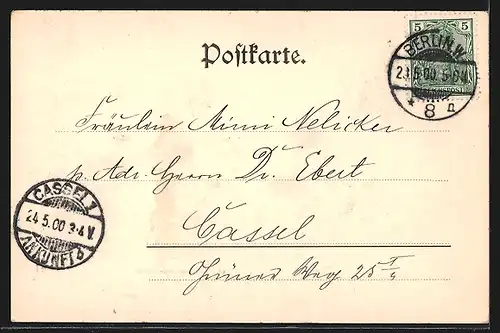 5 5
REICHSPOST
BERLIN. W.
23.5.00. 5-6 N.
* 8 a
Postkarte.
Fräulein Mimi Nelicker
p. Adr. Herrn Dr. Ebert
Cassel
Weg 25 I
CASSEL 1
24.5.00 3-4 V.
ANKUNFT